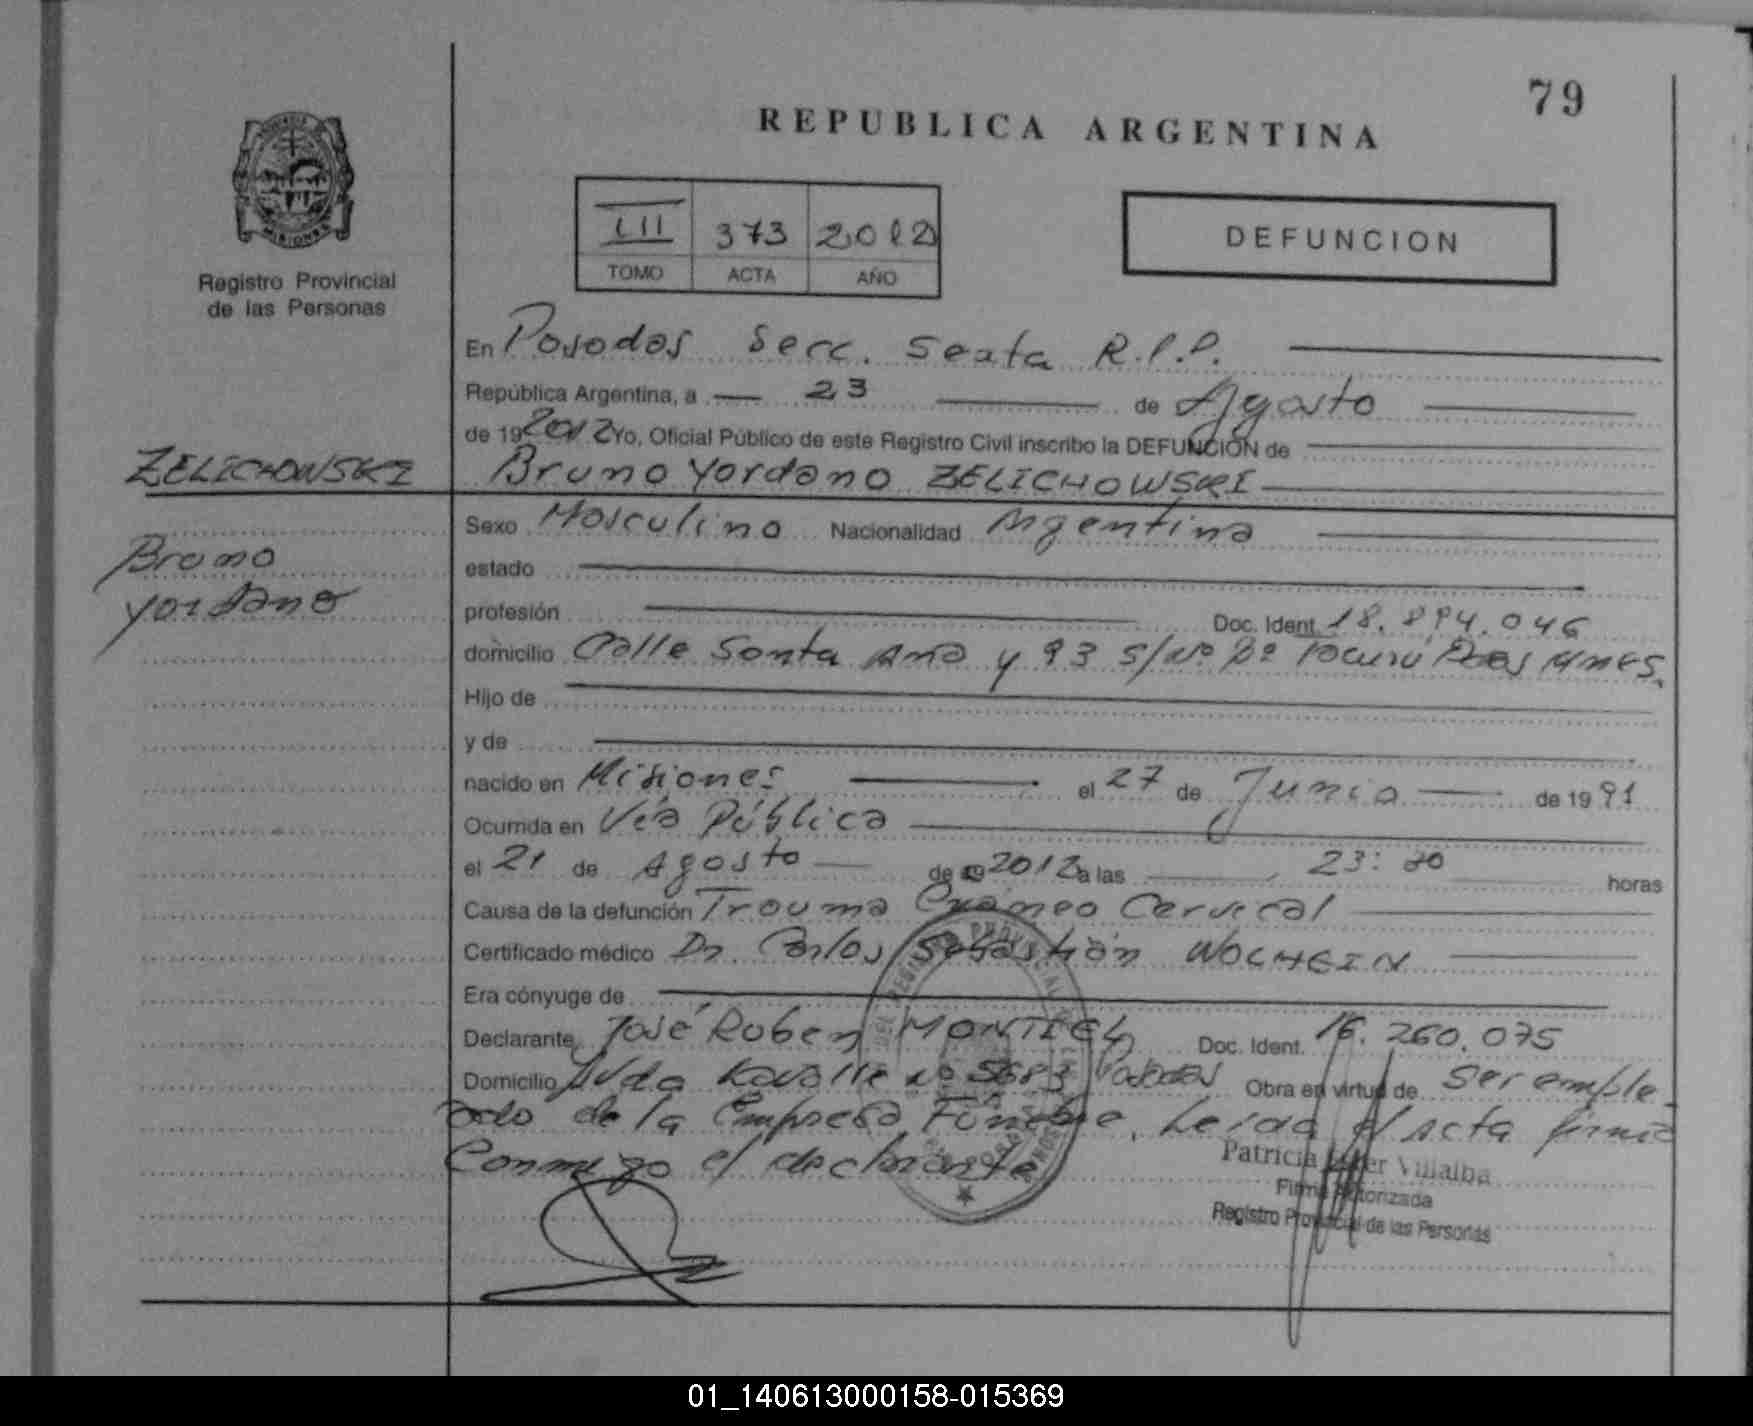 79
REPUBLICA ARGENTINA
III 373 2012
TOMO ACTA AÑO
DEFUNCION
MISIONES
Registro Provincial
de las Personas
En Posadas Secc. Sexta R.P.P.
República Argentina, a 23 de Agosto
de 19 2012 Yo, Oficial Público de este Registro Civil inscribo la DEFUNCIÓN de
ZELICHOWSKI
Bruno Yordano ZELICHOWSKI
Bruno
Yordano
Sexo Masculino Nacionalidad Argentina
estado
profesión Doc. Ident. 18.894.046
domicilio Calle Santa Ana y 93 S/Nº Bº Tacurú Pdas Mnes.
Hijo de
y de
nacido en Misiones el 27 de Junio de 1991
Ocurrida en Vía Pública
el 21 de Agosto de 2012 a las 23: horas
Causa de la defunción Trauma Cráneo Cervical
Certificado médico Dr. Carlos Sebastián WOLHEIN
Era cónyuge de
Declarante José Ruben MONTIEL Doc. Ident. 16.260.075
Domicilio Avda Lavalle Nº 5683 Posadas Obra en virtud de ser emple-
ado de la Empresa Fúnebre. Leída el Acta firma
Conmigo el declarante
Patricia Villalba
Firma Autorizada
Registro Provincial de las Personas
01_140613000158-015369